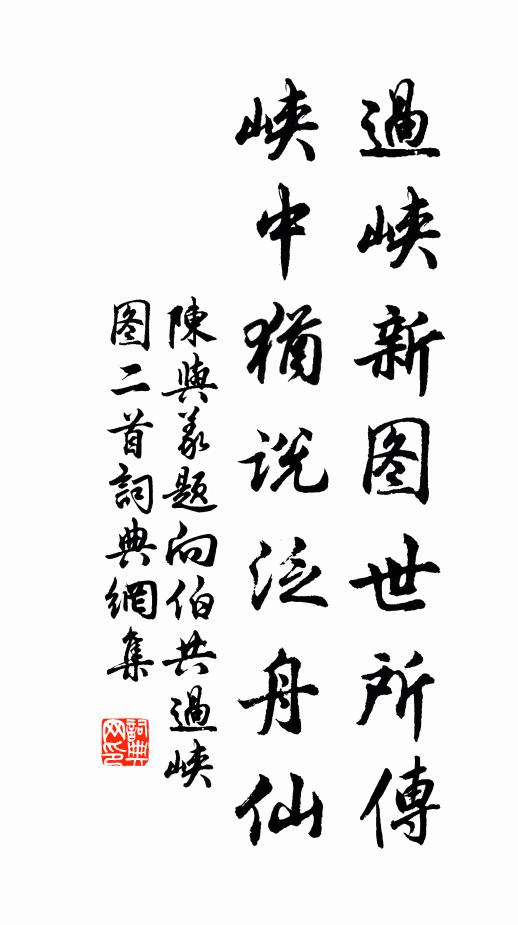 過峽新图世所傳
峽中猶説泛舟仙
陳與義題向伯共過峽
图二首詞典網集
詞典网印